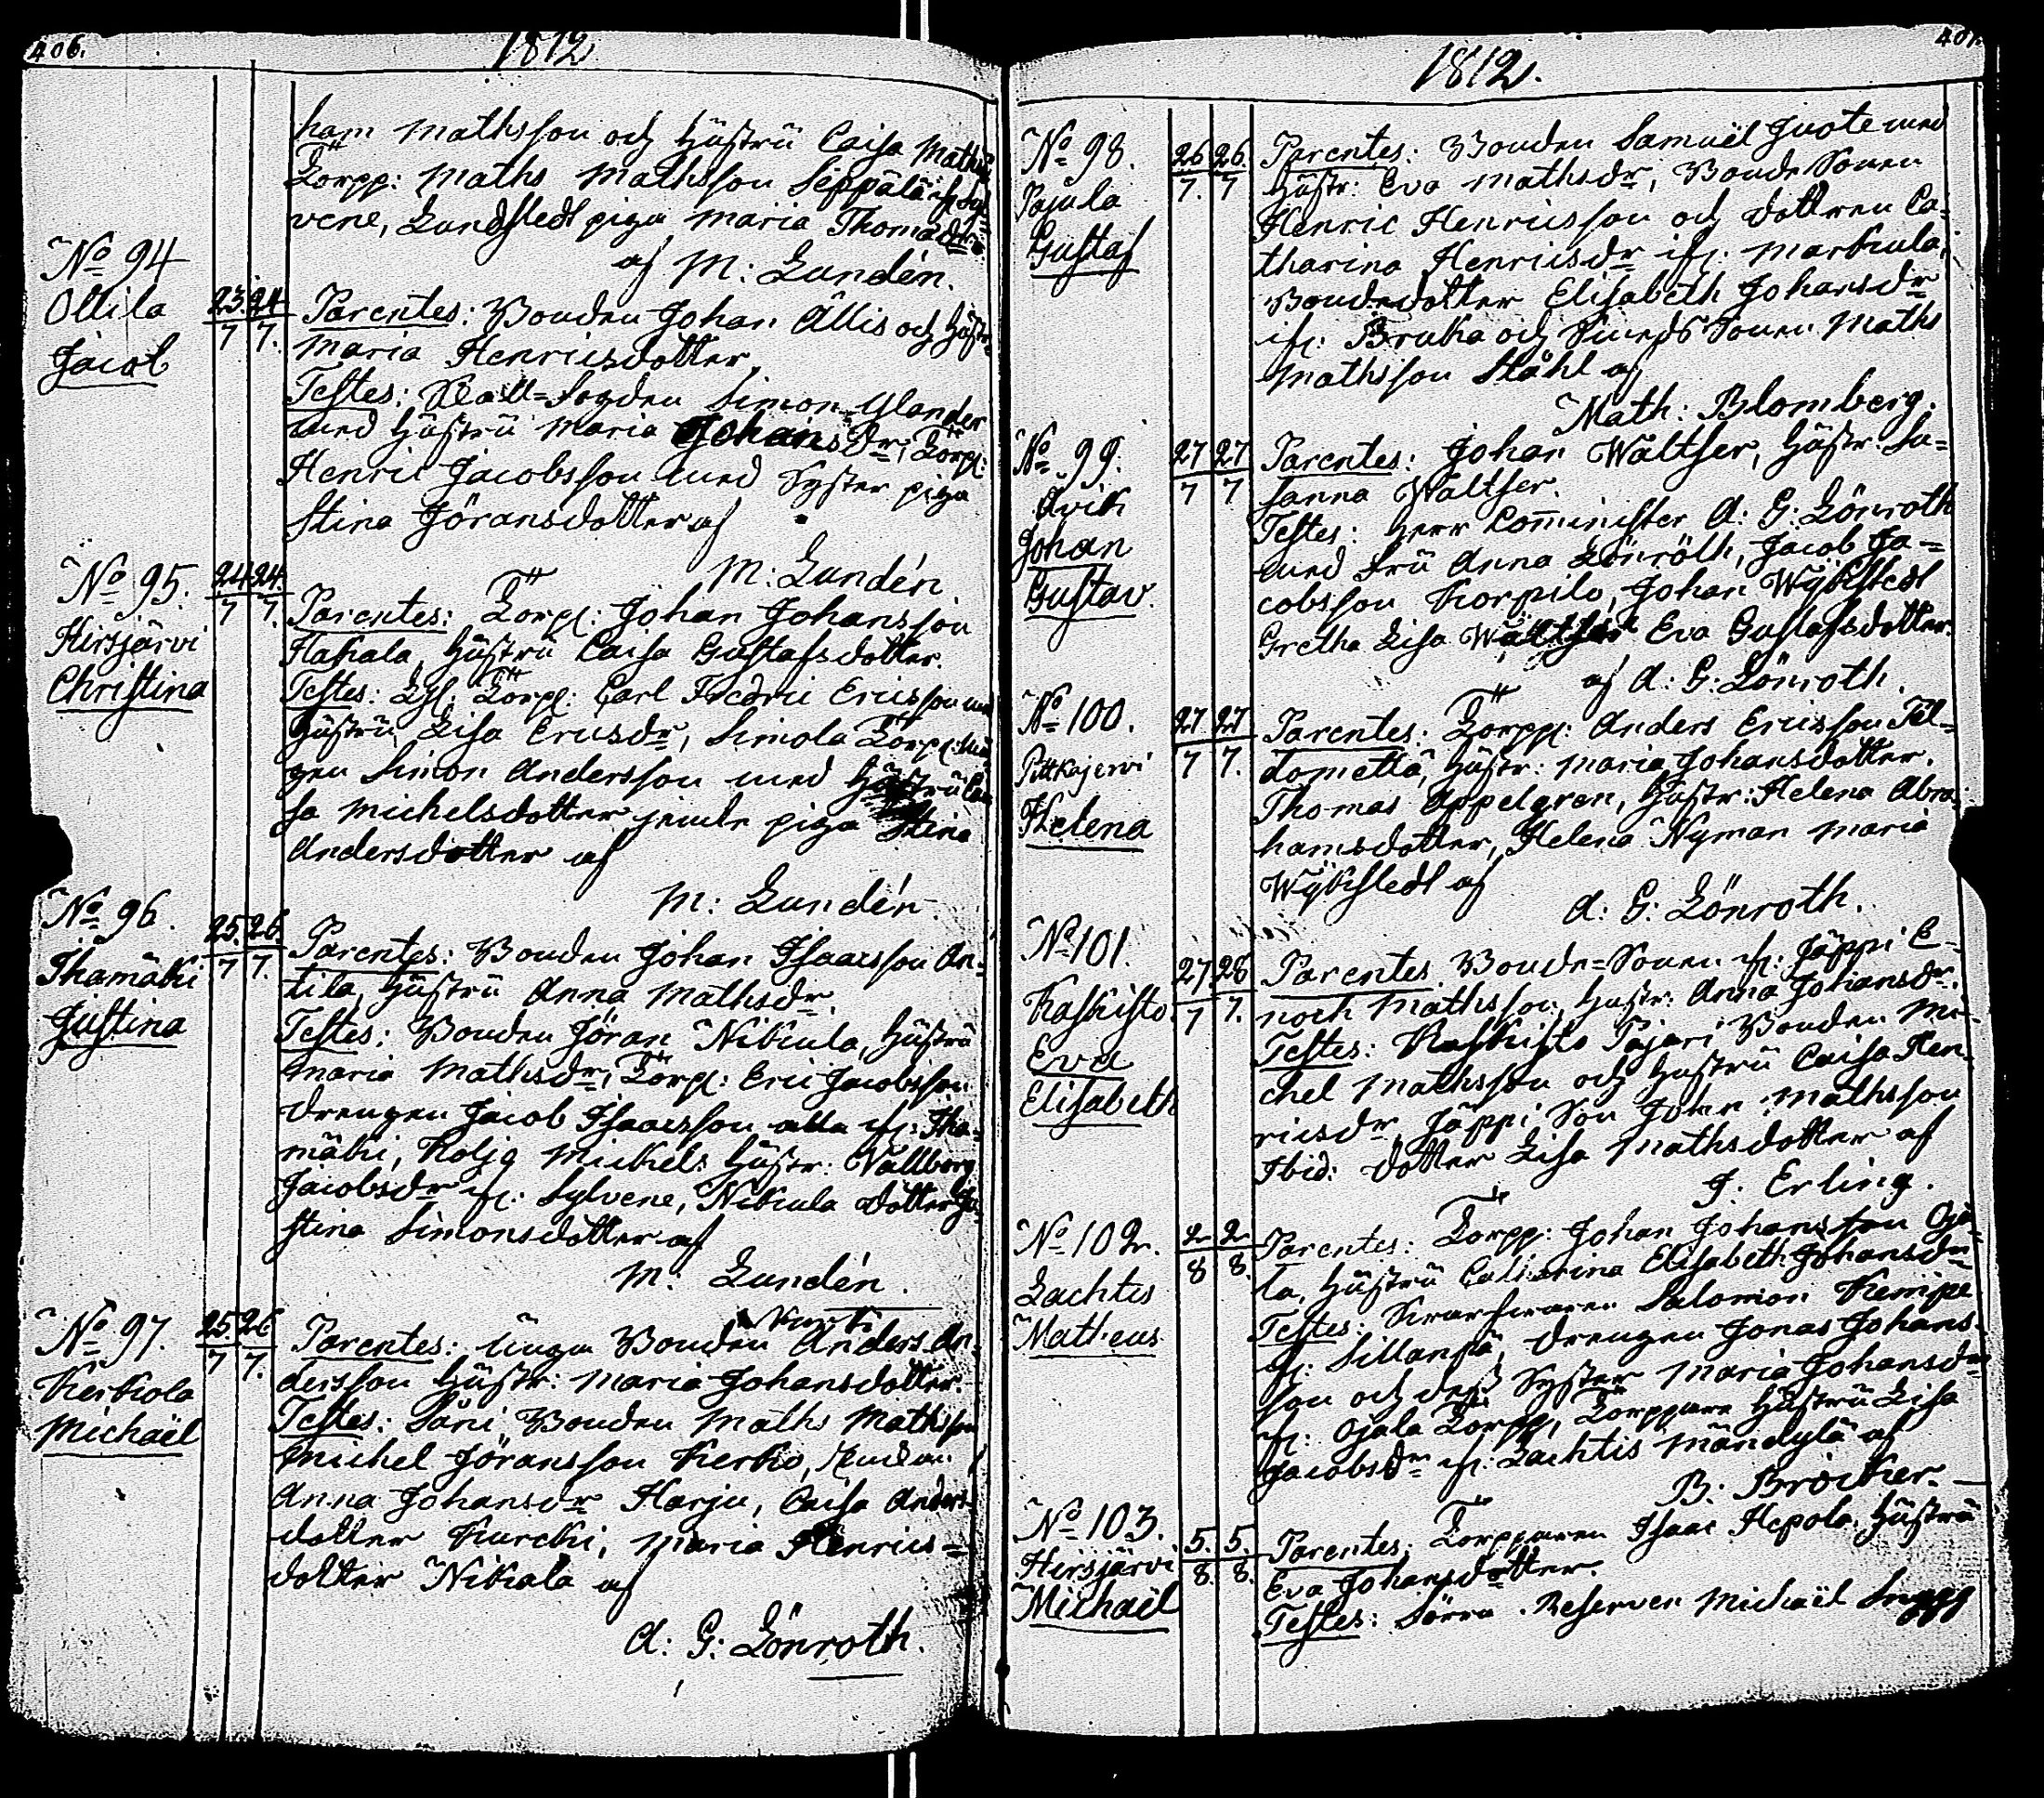 406.
1812
ham Mathsson och Hustru Caisa Maths
Torpp: Maths Mathsson Seppälä ifr. Syl-
vene, Lundstedt piga Maria Thomasdr
af M: Lundén.
No 94
Ollila
Jacob
23. 24
7 7.
Parentes: Bonden Johan Ällis och Hustr:
Maria Henricsdotter
Testes: Wall-Fogden Simon Ulander
med Hustru Maria Johansdr, Torp:
Henric Jacobsson med Syster piga
Stina Jöransdotter af
M: Lundén.
No 95.
Hirsjärvi
Christina
24 24.
7 7.
Parentes: Torp: Johan Johansson
Hakala, Hustru Caisa Gustafsdotter.
Testes: Torp: Carl Fredric Ericsson med
Hustru Lisa Ericsdr, Simola Torp:
Simon Andersson med Hustru Cai
sa Michelsdotter jemte piga Stina
Andersdotter af
M: Lundén.
No 96.
Ihamäki
Justina
25. 26
7 7.
Parentes: Bonden Johan Isaacsson An-
tila, Hustru Anna Mathsdr.
Testes: Bonden Jöran Nikkula, Hustru
Maria Mathsdr, Torp: Eric Jacobsson
Drengen Jacob Isaacsson alla ifr: Iha-
mäki, Koljo Mickels Hustr: Wallborg
Jacobsdr ifr: Sylvene, Nikkula dotter Ju-
stina Simonsdotter af
M: Lundén.
No 97.
Kerkola
Michaël
25. 26
7 7.
Kurki
Parentes: Unga Bonden Anders An-
dersson Hustr: Maria Johansdotter.
Testes: Säri Bonden Maths Mathsson
Michel Jöransson Kerko,
Anna Johansdr Harju, Caisa Anders-
dotter Kurcki, Maria Henrics-
dotter Nikala af
A: G: Lönroth.
407.
1812.
No 98.
Pajula
Gustaf
26 26.
7. 7
Parentes: Bonden Samuël Juote med
Hustr: Eva Mathsdr, Bonde Sonen
Henric Henricsson och dottren Ca-
tharina Henricsdr ifr: Markula,
Bondedotter Elisabeth Johansdr
ifr: Bruka och Smeds Sonen Maths
Mathsson Ståhl af
Math: Blomberg.
No 99.
Avik
Johan
Gustav.
27 27
7 7.
Parentes: Johan Waltser, Hustr: Su-
sanna Waltser.
Testes: Herr Comminister A: G: Lönroth
med Fru Anna Lönroth, Jacob Ja-
cobsson Korpilo, Johan Wykstedt
Gretha Lisa Waltser Eva Gustafsdotter.
af A: G: Lönroth.
No 100.
Pitkäjervi
Helena
27 27
7 7.
Parentes: Torpp: Anders Ericsson Tal-
tometta, Hustr: Maria Johansdotter.
Thomas Appelgren, Hustr: Helena Abra-
hamsdotter, Helena Nyman Maria
Wykstedt af
A: G: Lönroth.
No 101.
Kaskisto
Eva
Elisabeth
27 28
7 7.
Parentes. Bonde-Sonen ifr: Jäppi E-
noch Mathsson, Hustr: Anna Johansdr.
Testes: Kaskisto Pajari Bonden Mi-
chel Mathsson och Hustru Caisa Hen-
ricsdr, Jäppi Son Johan Mathsson
Ibid: dotter Lisa Mathsdotter af
J: Erling.
No 102.
Lachtis
Matheus
2 2
8 8.
Parentes: Torpp: Johan Johansson Oja-
la, Hustru Catharina Elisabeth Johansdr
Testes: Salomon Kempe
ifr: Sillanpä, Drengen Jonas Johans-
son och dess Syster Maria Johansdr
ifr: Ojala Torpp, Torppare Hustru Lisa
Jacobsdr ifr: Lachtis Mändylä af
B: Bröcker.
No 103.
Hirsjärvi
Michaël
5. 5.
8. 8.
Parentes: Torpparen Isaac Hepola, Hustru
Eva Johansdotter.
Testes: Sörra Reserven Michaël Snygg